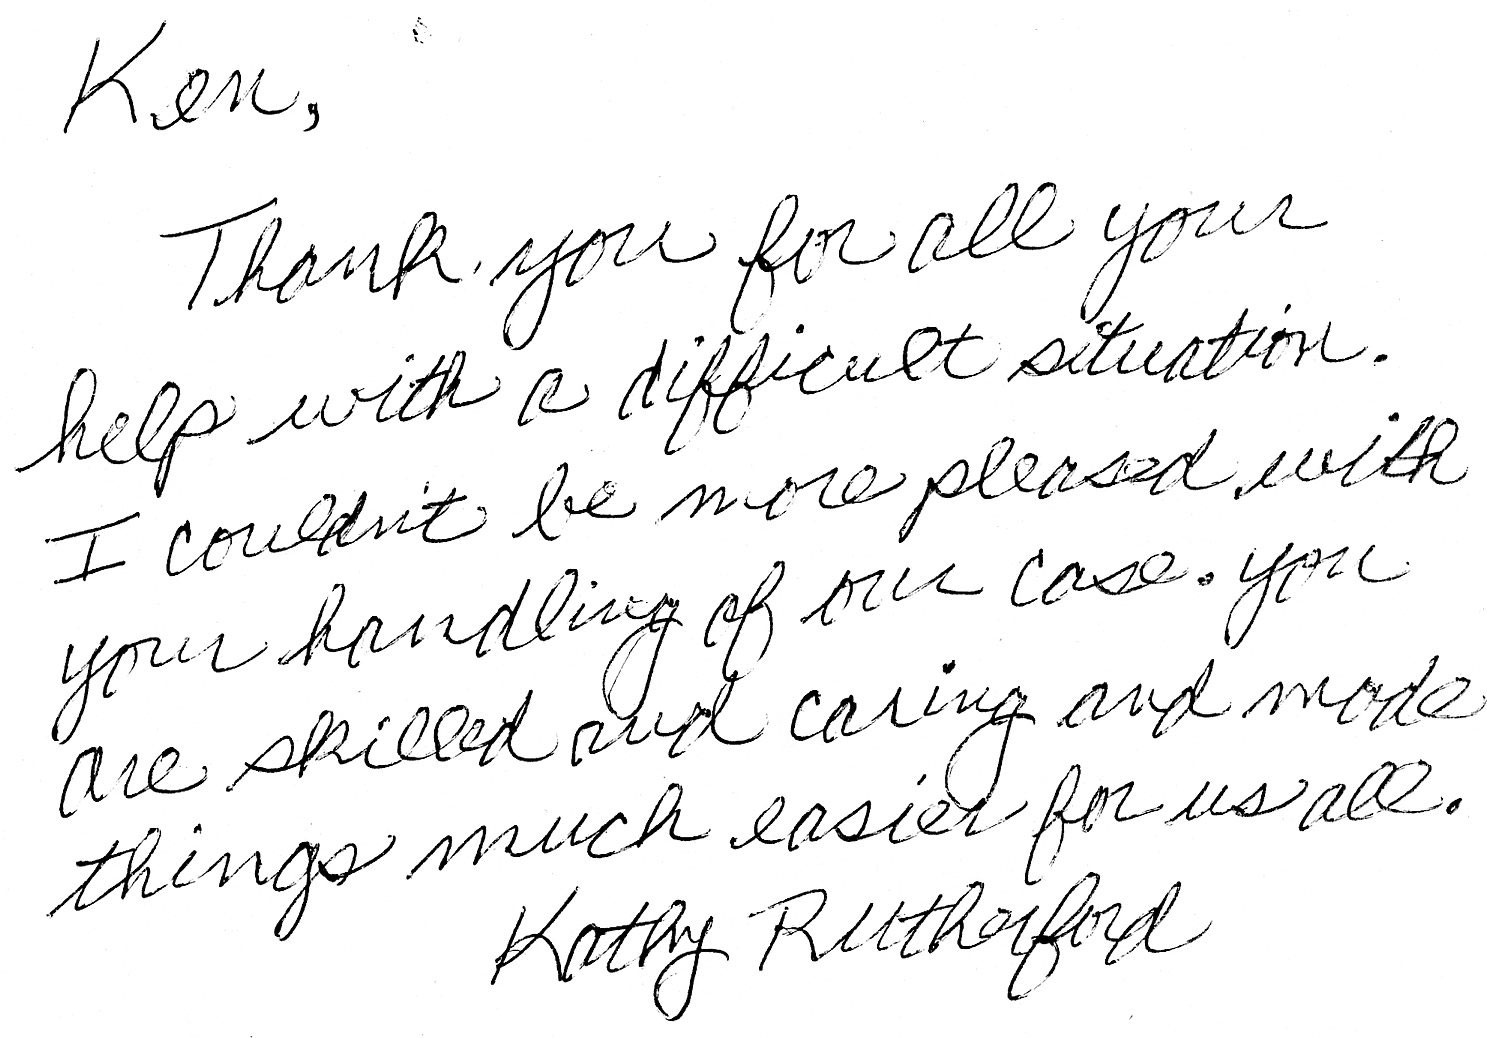 Ken,
Thank you for all your
help with a difficult situation.
I couldn't be more pleased with
your handling of our case. you
are skilled and caring and made
things much easier for us all.
Kathy Rutherford